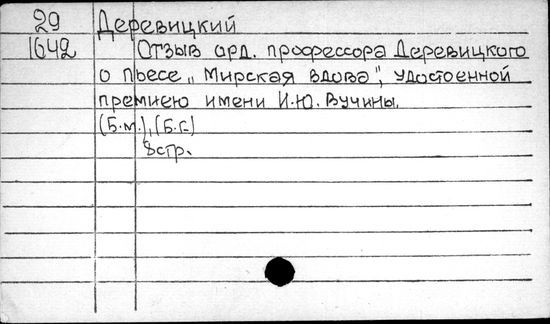 29 Деревицкий
1642 Отзыв орд. профессора Деревицкого
о пьесе „Мирская вдова", удостоенной
премиею имени И.Ю. Вучины.
(Б.м.), (Б.г.)
8стр.